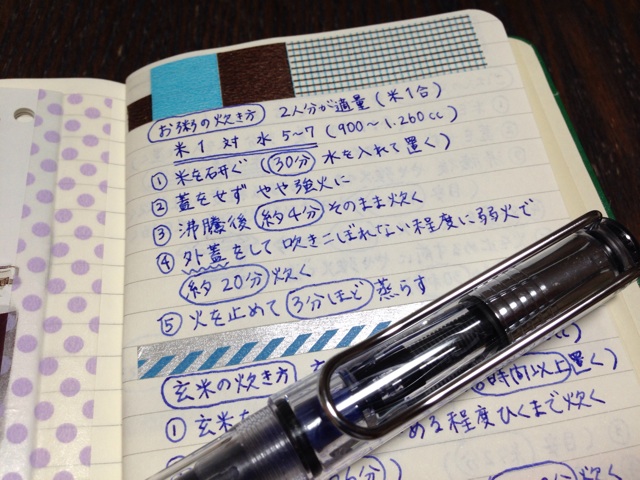 お粥の炊き方 2人分が適量(米1合)
米1 対 水 5~7 (900~1.260cc)
① 米を研ぐ (30分 水を入れて置く)
② 蓋をせず やや強火に
③ 沸騰後 約4分 そのまま炊く
④ 外蓋をして 吹きこぼれない程度に弱火で
約20分 炊く
⑤ 火を止めて 3分ほど 蒸らす
玄米の炊き方
時間以上置く)
① 玄米を
める程度ひくまで炊く